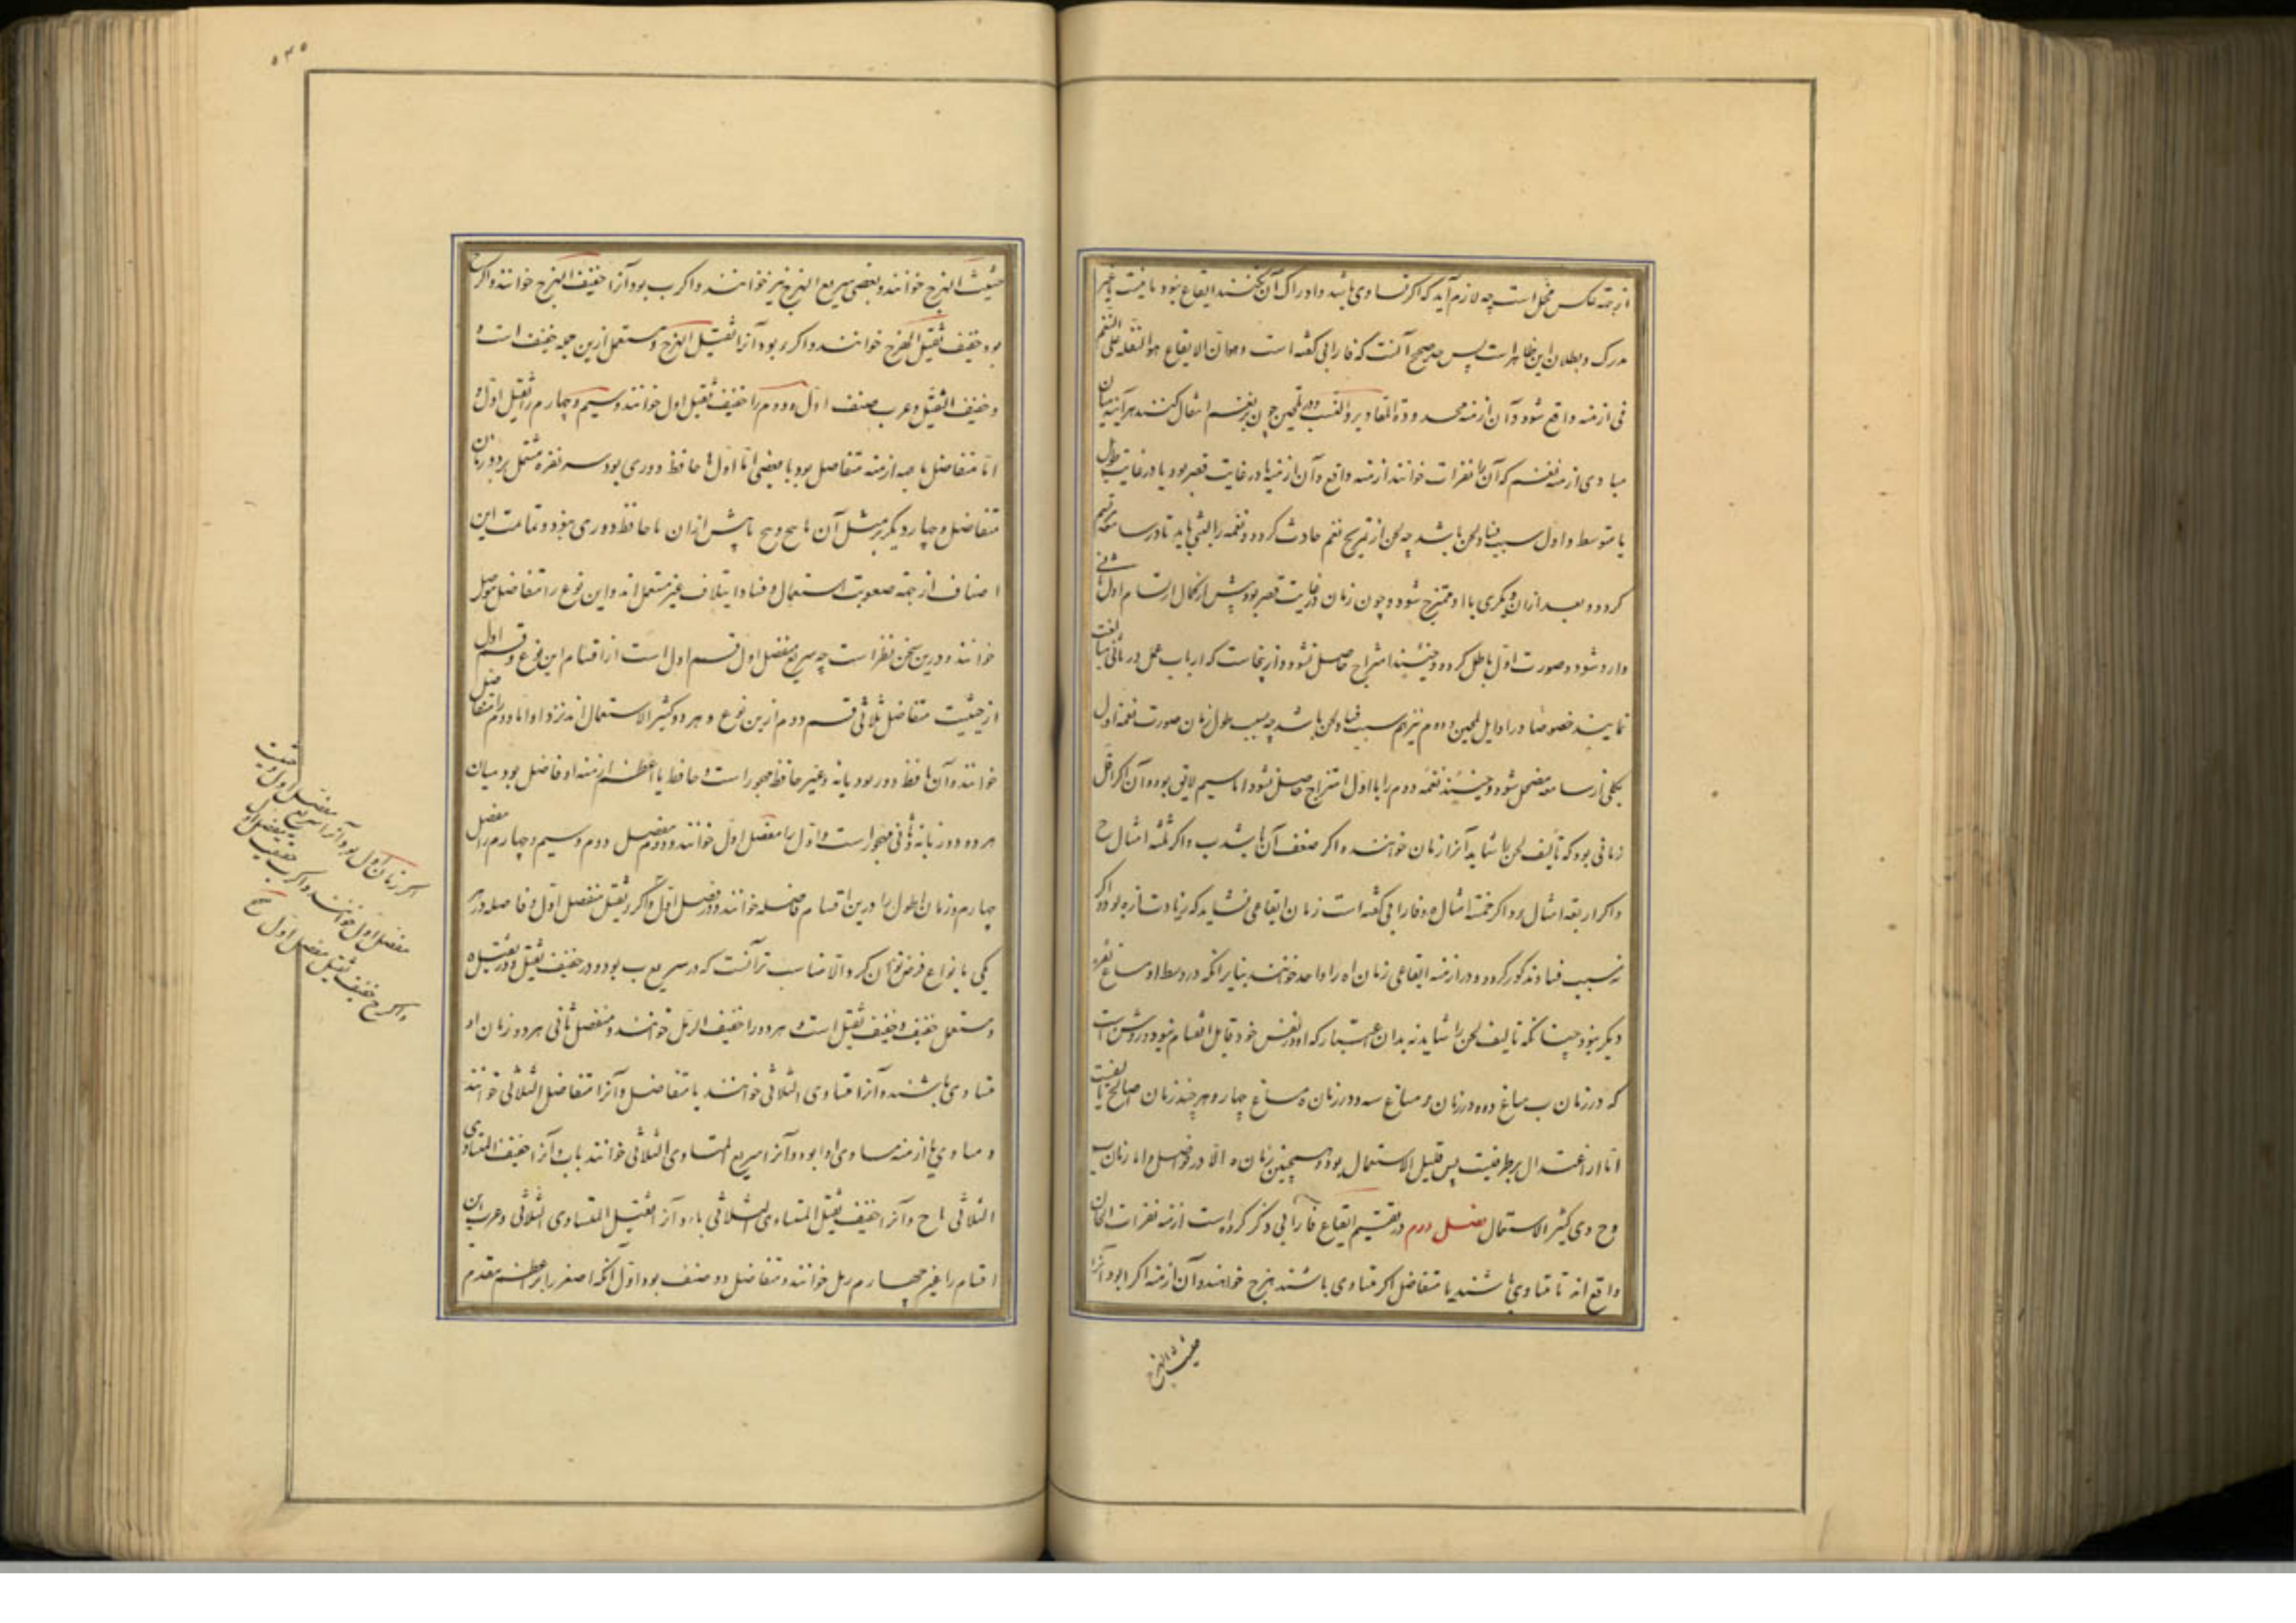 از جهة عکس مخل است چه لازم آید که اگر متساوی باشد و ادراک آن نکنند ایقاع نبود یا نیست یا غیر
مدرک و بطلان این ظاهر است پس حد صحیح آنست که فارابی گفته است و هو ان الایقاع هو النقلة علی النغم
فی ازمنه محدودة المقادیر و النسب و در تلحین چون بر نغم انتقال کنند هر آینه میان
مبادی ازمنه نغم که آن را نقرات خوانند ازمنه واقع و آن ازمنه یا در غایت قصر بود یا در غایت طول
یا متوسط و اول سبب فساد لحن باشد چه لحن از تمزیج نغم حادث گردد و نغمه را لبثی باید تا در سامعه مرتسم
گردد و بعد از آن دیگری با او ممتزج شود و چون زمان در غایت قصر بود پیش از کمال ارتسام اول ثانی
وارد شود و صورت اول باطل گردد و حینئذ امتزاج حاصل نشود و از اینجاست که ارباب عمل در تأنی مبالغت
نمایند خصوصا در اوایل تلحین و دوم نیز هم سبب فساد لحن باشد چه بسبب طول زمان صورت نغمه اول
بکلی از سامعه مضمحل شود و حینئذ نغمه دوم را با اول امتزاج حاصل نشود اما سیم لایق بود و آن اگر اقل
زمانی بود که تألیف لحن را شاید آنرا زمان ا خوانند و اگر ضعف آن باشد ب و اگر ثلثه امثال ج
و اگر اربعه امثال د و اگر خمسه امثال ه و فارابی گفته است زمان ایقاعی نشاید که زیادت از ه بود و اگر
نه سبب فساد مذکور گردد و در ازمنه ایقاعی زمان ا را واحد خوانند بنابر آنکه در وسط او مساغ نقره
دیگر نبود چنانکه تألیف لحن را شاید نه بدان اعتبار که او در نفس خود قابل انقسام نبود و روشن است
که در زمان ب مساغ
اما از اعتدال بر طرفیست پس قلیل الاستعمال بود و همچنین زمان ه الا در فواصل و اما زمان ب
و ج و د کثیر الاستعمال فصل دوم در تقسیم ایقاع فارابی ذکر کرده است ازمنه نقرات الحان
واقع اند تا متساوی باشند یا متفاضل اگر متساوی باشند هزج خوانند و آن ازمنه اگر ا بود آنرا
حثیث الهزج
۵۳۵
حثیث الهزج خوانند و بعضی سریع الهزج نیز خوانند و اگر ب بود آنرا خفیف الهزج خوانند و اگر ج
بود خفیف ثقیل الهزج خوانند و اگر د بود آنرا ثقیل الهزج و مستعمل ازین جمله خفیف است و
و خفیف الثقیل و عرب صنف اول و دوم را خفیف ثقیل اول خوانند و سیم و چهارم را ثقیل اول و
اما متفاضل یا همه ازمنه متفاضل بود یا بعضی اما اول یا حافظ دوری بود سه نقره مشتمل بر دو زمان
متفاضل و چهار دیگر بر مثل آن
اصناف از جهة صعوبت استعمال و فساد ایتلاف غیر مستعمل اند و این نوع را متفاضل موصل
خوانند و درین سخن نظر است چه سریع مفصل اول قسم اول است از اقسام این نوع و قسم اول
از حثیث متفاضل ثلاثی قسم دوم ازین نوع و هر دو کثیر الاستعمال اند نزد او اما دوم را متفاضل مفصل
خوانند و آن یا حافظ دور بود یا نه و غیر حافظ مهجور است و حافظ یا اعظم ازمنه او فاصل بود میان
هر دو دور یا نه و ثانی مهجور است و اول را مفصل اول خوانند و دوم مفصل دوم و سیم و چهارم را مفصل
چهارم و زمان اطول را درین اقسام فاصله خوانند و در مفصل اول
یکی با نواع فرض توان کرد و الا مناسب تر آنست که در سریع ب بود و در خفیف ثقیل و در ثقیل ه
و مستعمل خفیف و خفیف ثقیل است و هر دو را خفیف الرمل خوانند و مفصل ثانی هر دو زمان او
متساوی باشند و آنرا متساوی الثلاثی خوانند یا متفاضل و آنرا متفاضل الثلاثی خوانند
و متساوی یا ازمنه متساوی او ا بود و آنرا سریع المتساوی الثلاثی خوانند یا ب و آنرا خفیف المتساوی
الثلاثی یا ج و آنرا خفیف ثقیل المتساوی الثلاثی یا د و آنرا ثقیل المتساوی الثلاثی و عرب این
اقسام را غیر چهارم رمل خوانند و متفاضل دو صنف بود اول آنکه اصغر را بر اعظم مقدم
اگر زمان اول ا بود آنرا سریع مفصل اول و حثیث
مفصل اول خوانند و اگر ب خفیف مفصل اول
و اگر ج خفیف ثقیل مفصل اول